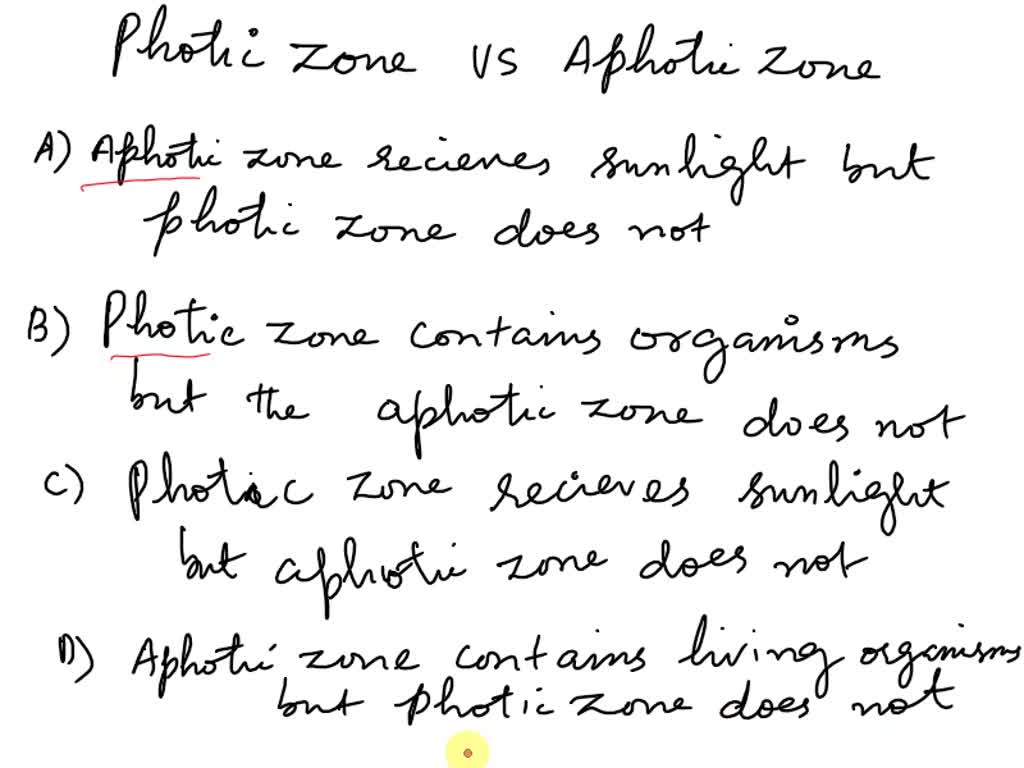 Photic zone vs Aphotic zone
A) Aphotic zone recieves sunlight but
photic zone does not
B) Photic zone contains organisms
but the aphotic zone does not
C) Photic zone recieves sunlight
but aphotic zone does not
D) Aphotic zone contains living organisms
but photic zone does not